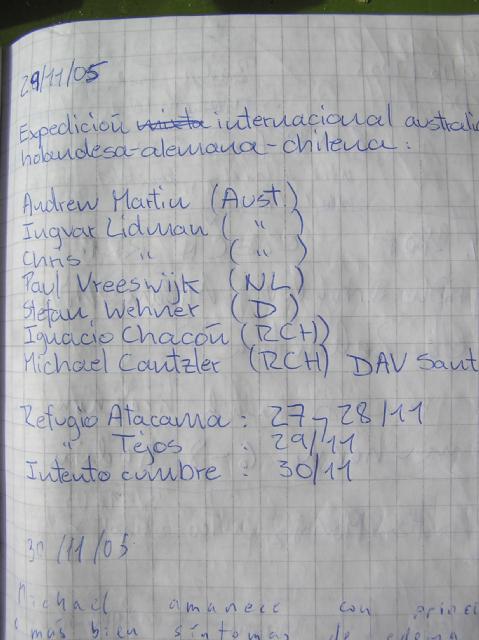 29/11/05
Expedición mixta internacional australi
holandesa-alemana-chilena:
Andrew Martin (Aust.)
Ingvar Lidman ( " )
Chris " ( " )
Paul Vreeswijk (NL)
Stefan Wehner (D)
Ignacio Chacón (RCH)
Michael Cantzler (RCH) DAV Sant
Refugio Atacama: 27 - 28/11
" Tejos : 29/11
Intento cumbre : 30/11
30/11/05
Michael amanece con princi
más bien síntomas de edema